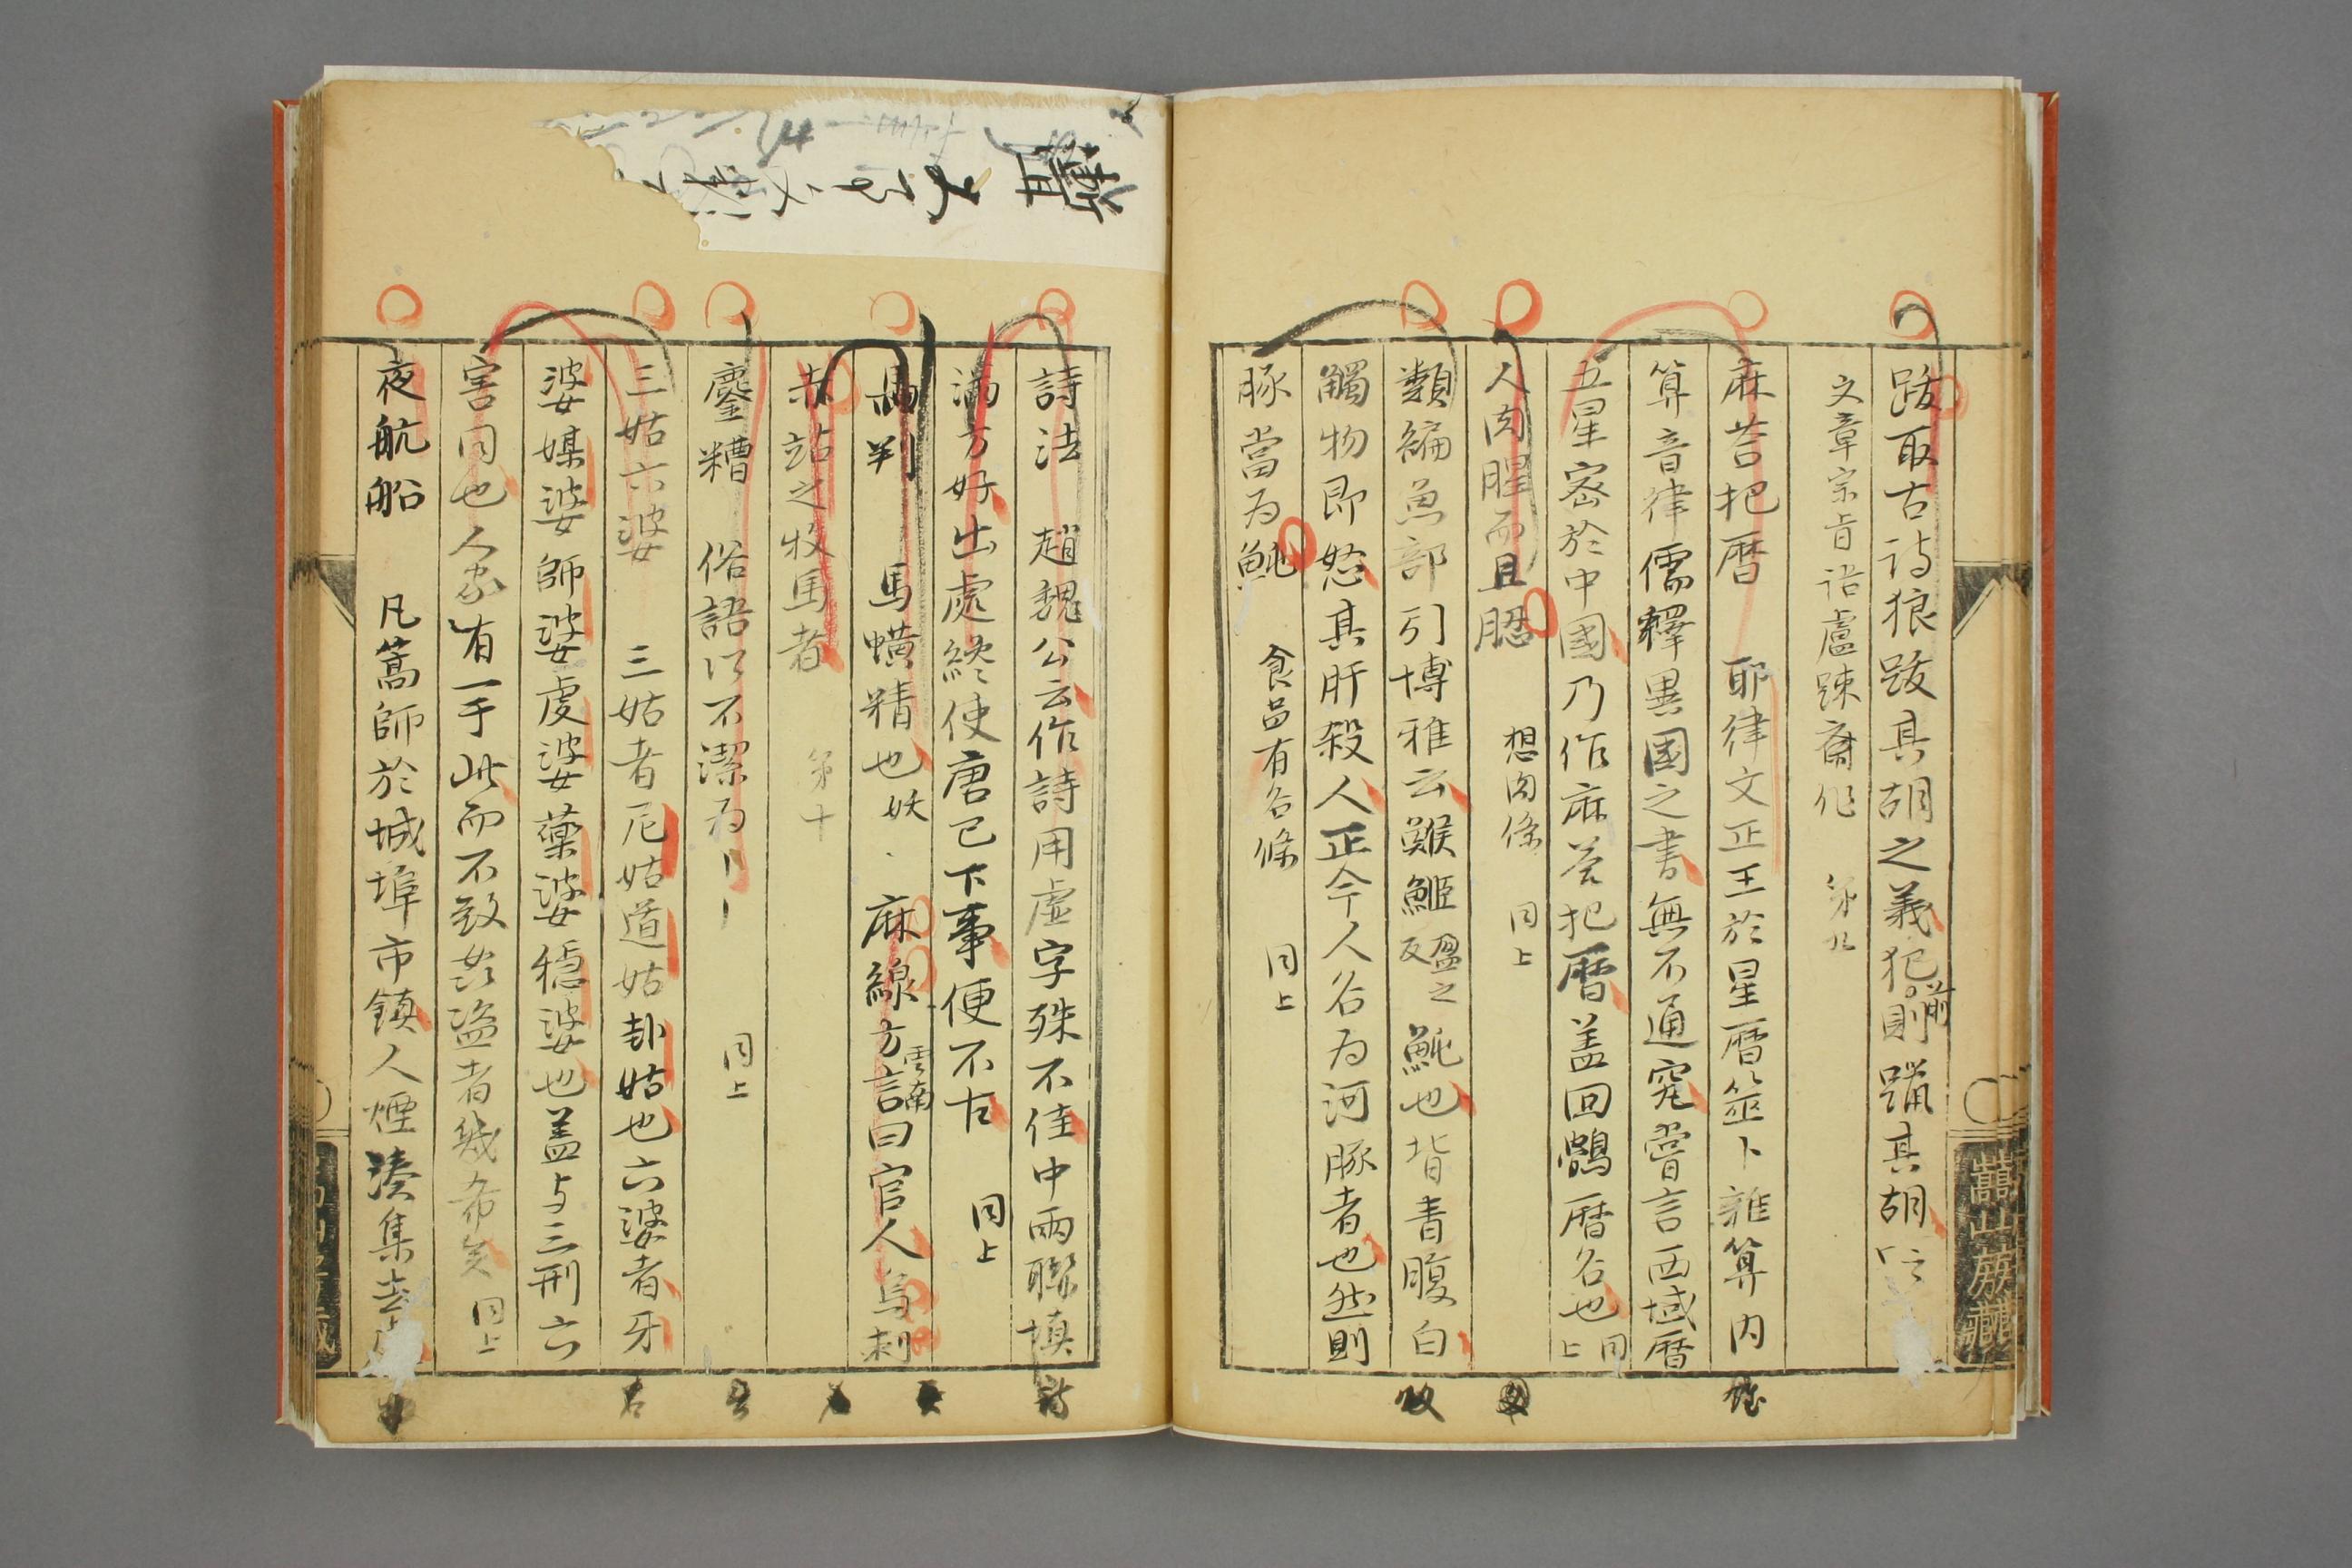 跋取古詩狼跋其胡之義犯前則躐其胡
文章宗旨語盧踈齋作 第九
麻荅把曆 耶律文正王於星曆筮卜雜算內
算音律儒釋異國之書無不通究嘗言西域曆
五星密於中國乃作麻荅把曆蓋回鶻曆名也 同上
人肉腥而且 想肉條 同上
類編魚部引博雅云鯸䱌 盈之反 魨也背青腹白
觸物即怒其肝殺人正今人名為河豚者也然則
豚當為魨 食品有名條 同上
詩法 趙魏公云作詩用虛字殊不佳中兩聯填
滿方好出處纔使唐已下事便不古 同上
馬判 馬蟥精也 妖 麻線 雲南方言曰官人烏剌
赤站之牧馬者 第十
鏖糟 俗語以不潔為 同上
三姑六婆 三姑者尼姑道姑卦姑也六婆者牙
婆媒婆師婆虔婆藥婆穩婆也蓋与三刑六
害同也人家有一于此而不致姦盜者幾希矣 同上
夜航船 凡篙師於城埠市鎮人煙湊集去